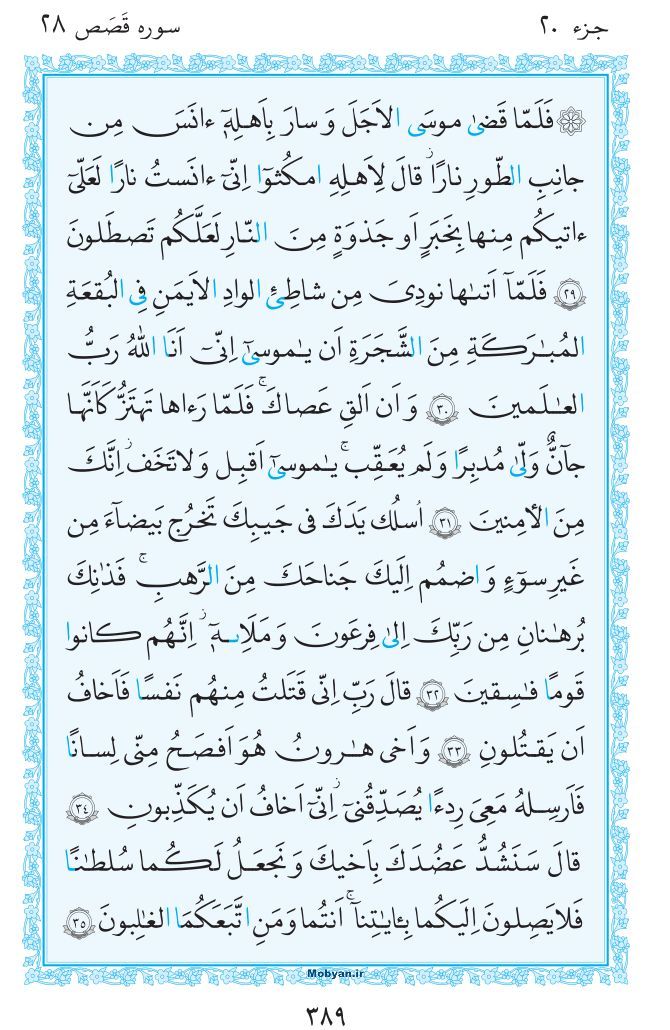 جزء ۲۰
سوره قَصَص ۲۸
۞ فَلَمّا قَضىٰ موسَى الاَجَلَ وَ سارَ بِاَهلِهٖٓ ءانَسَ مِن
جانِبِ الطّورِ نارًا ۚ قالَ لِاَهلِهِ امكُثوٓا اِنّىٓ ءانَستُ نارًا لَعَلّىٓ
ءاتيكُم مِنها بِخَبَرٍ اَو جَذوَةٍ مِنَ النّارِ لَعَلَّكُم تَصطَلونَ
﴿۲۹﴾ فَلَمّآ اَتىٰها نودِىَ مِن شاطِئِ الوادِ الاَيمَنِ فِى البُقعَةِ
المُبٰرَكَةِ مِنَ الشَّجَرَةِ اَن يٰموسىٰٓ اِنّىٓ اَنَا اللّٰهُ رَبُّ
العٰلَمينَ ﴿۳۰﴾ وَ اَن اَلقِ عَصاكَ ۚ فَلَمّا رَءاها تَهتَزُّ كَاَنَّها
جآنٌّ وَلّىٰ مُدبِرًا وَ لَم يُعَقِّب ۚ يٰموسىٰٓ اَقبِل وَ لا تَخَف ۖ اِنَّكَ
مِنَ الأٰمِنينَ ﴿۳۱﴾ اُسلُك يَدَكَ فى جَيبِكَ تَخرُج بَيضآءَ مِن
غَيرِ سوٓءٍ وَ اضمُم اِلَيكَ جَناحَكَ مِنَ الرَّهبِ ۚ فَذٰنِكَ
بُرهٰنانِ مِن رَبِّكَ اِلىٰ فِرعَونَ وَ مَلَا۟ئِهٖٓ ۚ اِنَّهُم كانوا
قَومًا فٰسِقينَ ﴿۳۲﴾ قالَ رَبِّ اِنّى قَتَلتُ مِنهُم نَفسًا فَاَخافُ
اَن يَقتُلونِ ﴿۳۳﴾ وَ اَخى هٰرونُ هُوَ اَفصَحُ مِنّى لِسانًا
فَاَرسِلهُ مَعِىَ رِدءًا يُصَدِّقُنىٓ ۖ اِنّىٓ اَخافُ اَن يُكَذِّبونِ ﴿۳۴﴾
قالَ سَنَشُدُّ عَضُدَكَ بِاَخيكَ وَ نَجعَلُ لَكُما سُلطٰنًا
فَلا يَصِلونَ اِلَيكُما بِـٔايٰتِنآ ۚ اَنتُما وَ مَنِ اتَّبَعَكُمَا الغٰلِبونَ ﴿۳۵﴾
Mobyan.ir
۳۸۹